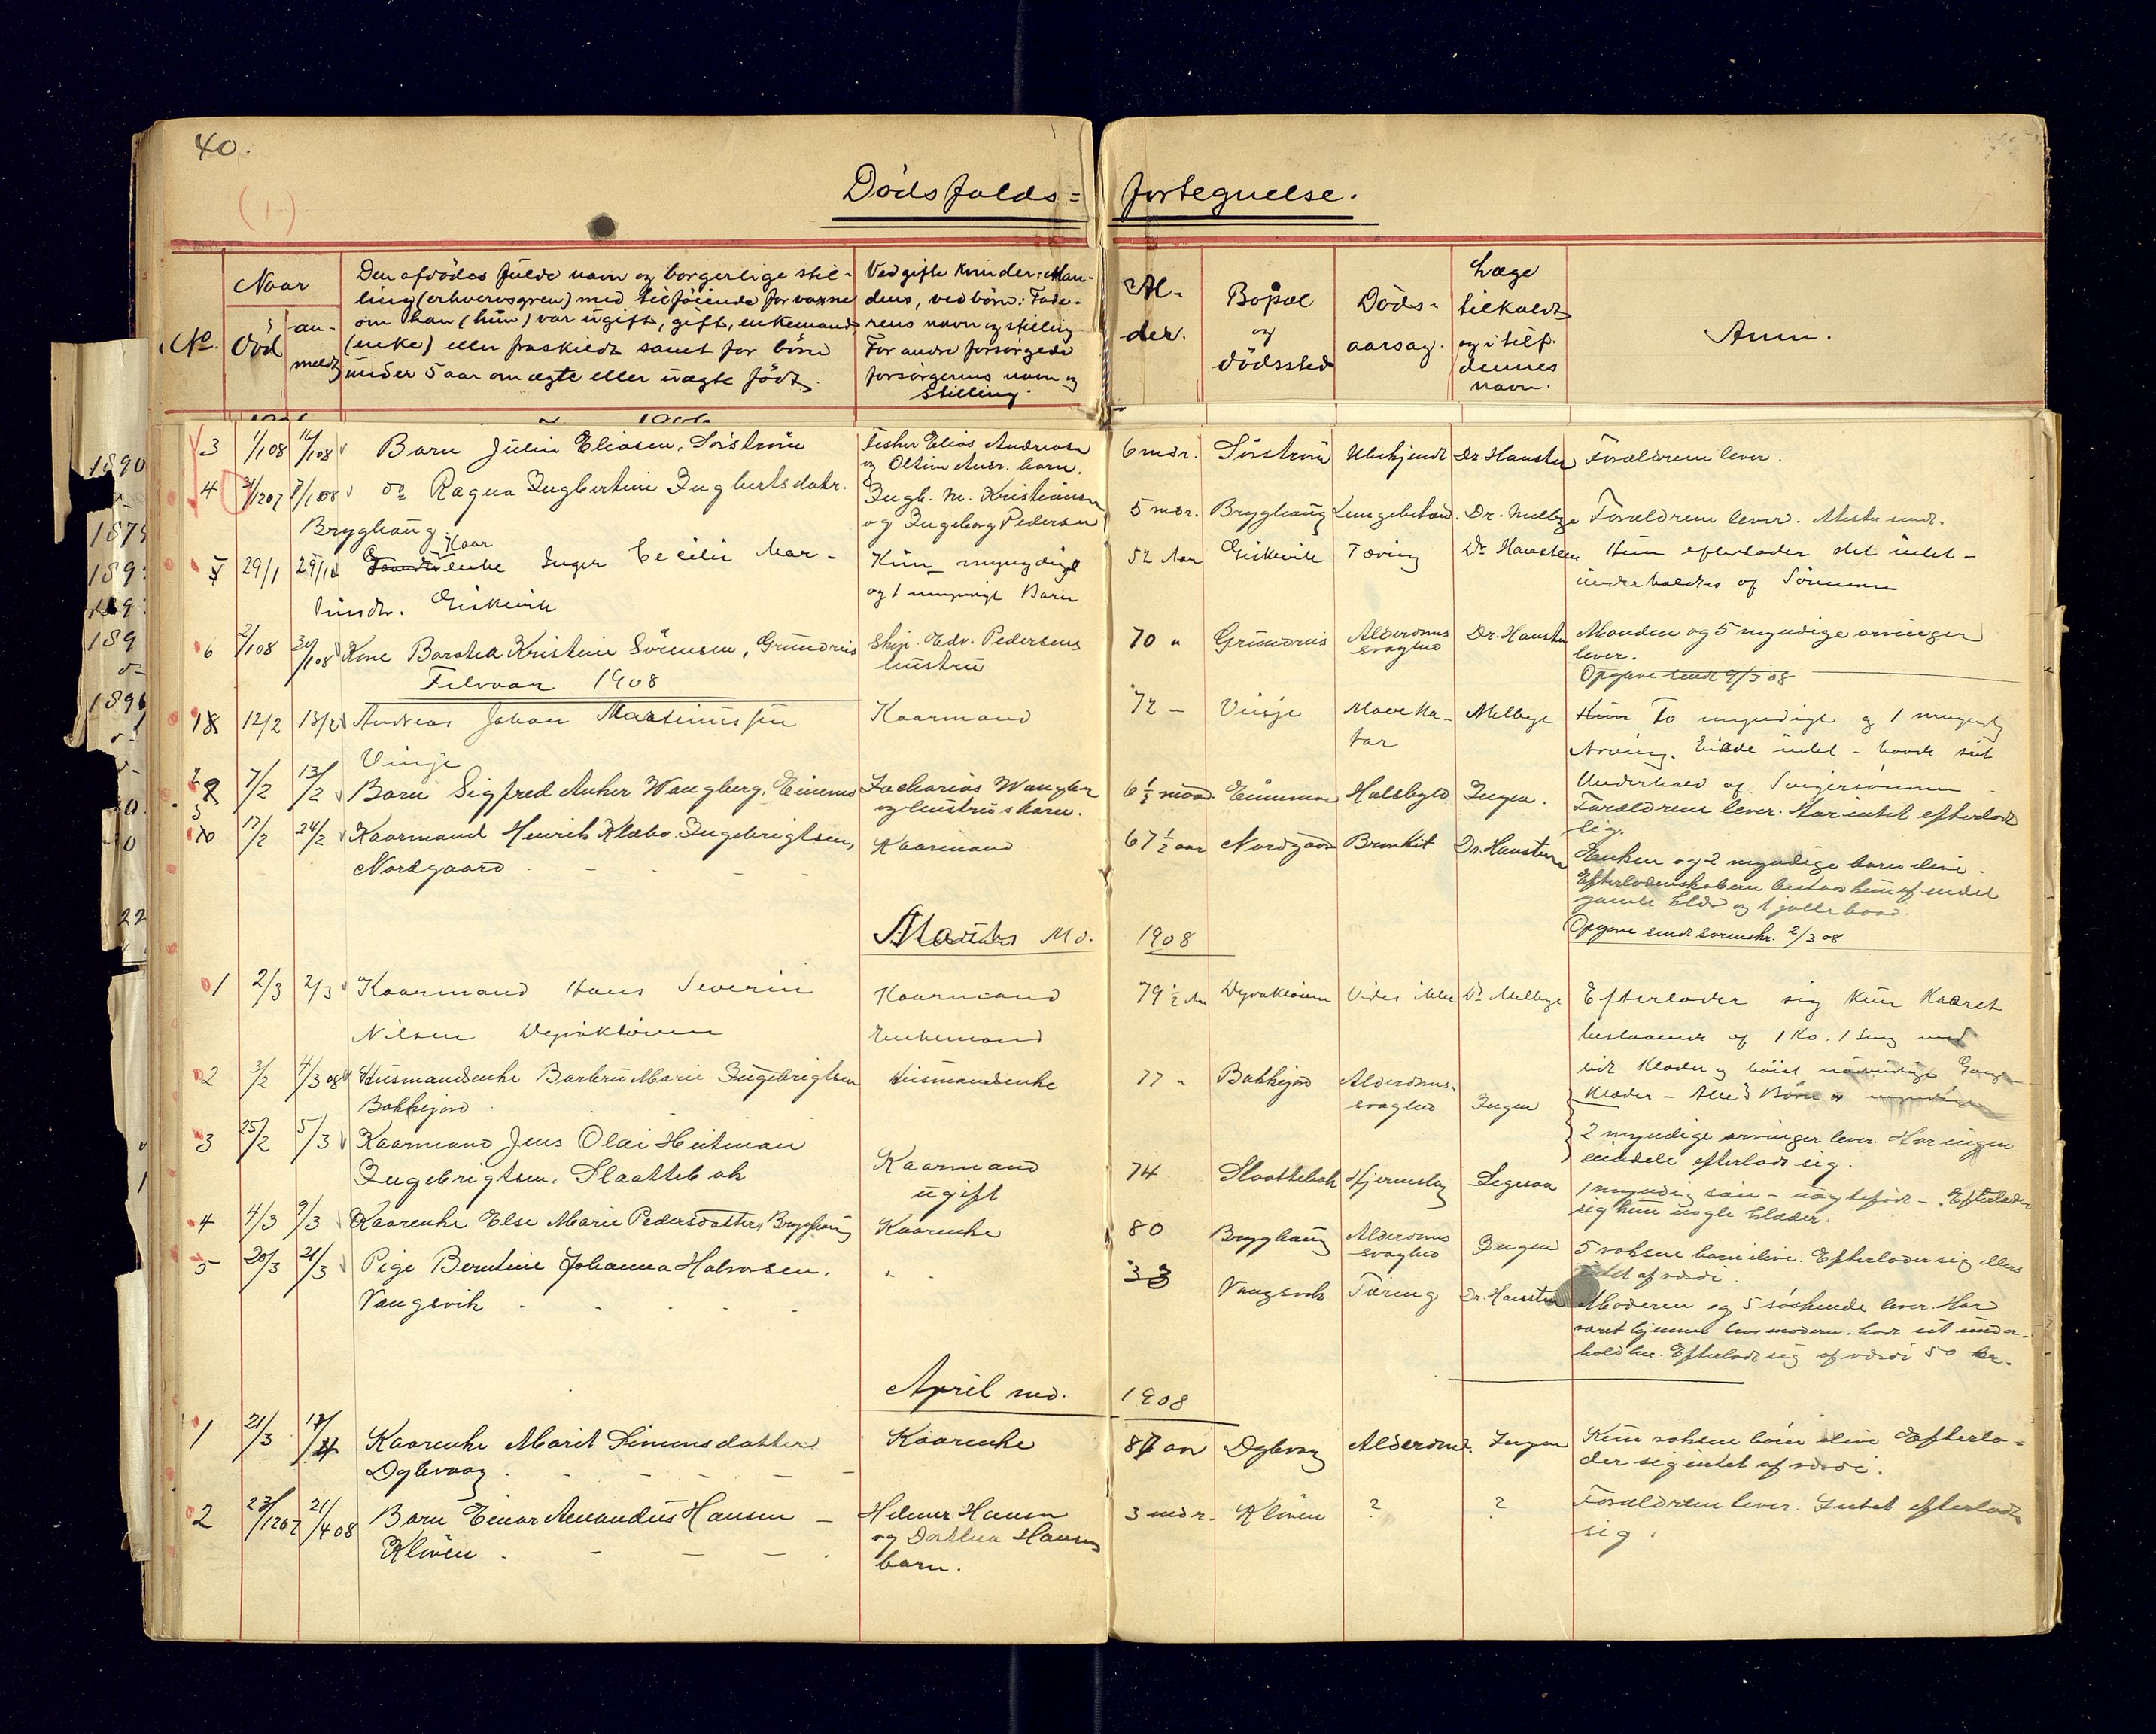 40.
Dödsfalds= fortegnelse.
No.
Naar
död
an-
meldt
Den afdödes fulde navn og borgerlige stil-
ling (erhvervsgren) med tilföiende for voxne
om han (hun) var ugift, gift, enkemand
(enke) eller fraskildt samt for börn
under 5 aar om ægte eller uægte födt.
Ved gifte kvinder: Man-
dens, ved börn: Fade-
rens navn og stilling
For andre forsörgede
forsörgerens navn og
stilling.
Al-
der.
Bopæl
og
dödssted
Döds-
aarsag.
Læge
tilkaldt
og i tilf.
dennes
navn.
Anm.
3 1/1 08 16/1 08 Barn Julin Eliasen, Sörströn
Fisker Elias Andreasen
og Oltine Andr. barn.
6 mdr. Sörströn Ubekjendt Dr. Hausten Forældrene lever.
4 31/12 07 7/1 08 do Ragna Ingbertine Ingbertsdatr.
Bryghaug
Ingb. M. Kristiansen
og Ingeborg Pedersen
5 mdr. Bryghaug Lungebetænd. Dr. Melbye Forældrene lever. Attester sendt.
5 29/1 29/1 Kaar
enke Inger Cecilie Mar-
tinsdtr. Giskevik
Kun myndige
og 1 umyndigt Barn
52 Aar Giskevik Tæring Dr. Hausteen Hun efterlader det intet -
underholdtes af Sönnen
6 2/1 08 30/1 08 Kone Barohea Kristine Sörensen, Grundnes
Skip. Edv. Pedersens
hustru
70 " Grundnes Alderdoms
svaghed Dr. Hausten Manden og 5 myndige arvinger
lever.
Opgave sendt 9/3 08
Februar 1908
1 12/2 13/2 Andreas Johan Martinussen
Vinje
Kaarmand
72 - Vinje Maveka-
tar Melbye To myndige og 1 umyndig
Arving. Eiede intet - havde sit
Underhold af Svigersönnen
2 7/2 13/2 Barn Sigfred Anker Wangberg, Einenes
Zacharias Wangberg
og hustrus barn.
6 1/2 maad. Halsbyld Ingen. Forældrene lever. Har intet efterladt
sig.
3 17/2 24/2 Kaarmand Henrik Klæbo Ingebrigtsen,
Nordgaard
Kaarmand
67 1/2 aar Nordgaard Bronkit Dr. Hausteen Enken og 2 myndige barn ilive.
Efterladenskaberne bestaar kun af endel
gamle klær og 1 jolle baad.
Opgave sendt sorenskr. 2/3 08
Marts Md. 1908
1 2/3 2/3 Kaarmand Hans Severin
Nilsen Dyvikkløven
Kaarmand
Enkemand
79 1/2 Aar Vides ikke Dr Melbye Efterlader sig kun Kaaret
bestaaende af 1 Ko. 1 Seng med
lidt Klæder og höist nödvendige Gang-
klæder - Alle 3 Börn er myndige
2 3/2 4/3 08 Husmandsenke Barbru Marie Ingebrigtsen
Bakkejord
Husmandsenke
77 " Bakkejord Alderdoms-
svaghed Ingen
2 myndige arvinger lever. Har ingen
eiendele efterladt sig.
3 25/2 5/3 Kaarmand Jens Olai Heitman
Ingebrigtsen. Slaattebak
Kaarmand
ugift
74 Slaattebak Hjerneslag
1 myndig sön - uægtefödt - . Efterlader
sig kun nogle klæder.
4 4/3 9/3 Kaarenke Else Marie Pedersdatter, Bryghaug
Kaarenke
80 Bryghaug Alderdoms
svaghed Ingen 5 voksne barn ilive. Efterlader sig ellers
intet af værdi.
5 20/3 21/3 Pige Berntine Johanna Halvorsen.
Vangsvik
33 Vangsvik Tæring Dr. Hausten Moderen og 5 söskende lever. Har
været hjemme hos moderen. havt sit under-
hold her. Efterladt sig af værdi 50 kr.
April md. 1908
1 21/3 17/4 Kaarenke Marit Simonsdatter
Dybvaag.
Kaarenke
87 aar Dybvaag Alderdom. Ingen Kun voksne barn ilive Efterla-
der sig intet af værdi.
2 23/12 07 21/4 08 Barn Einar Amandus Hansen
Klöven
Helmer Hansen
og Dorthea Hansens
barn.
3 mdr. Klöven ? ? Forældrene lever. Intet efterladt
sig.